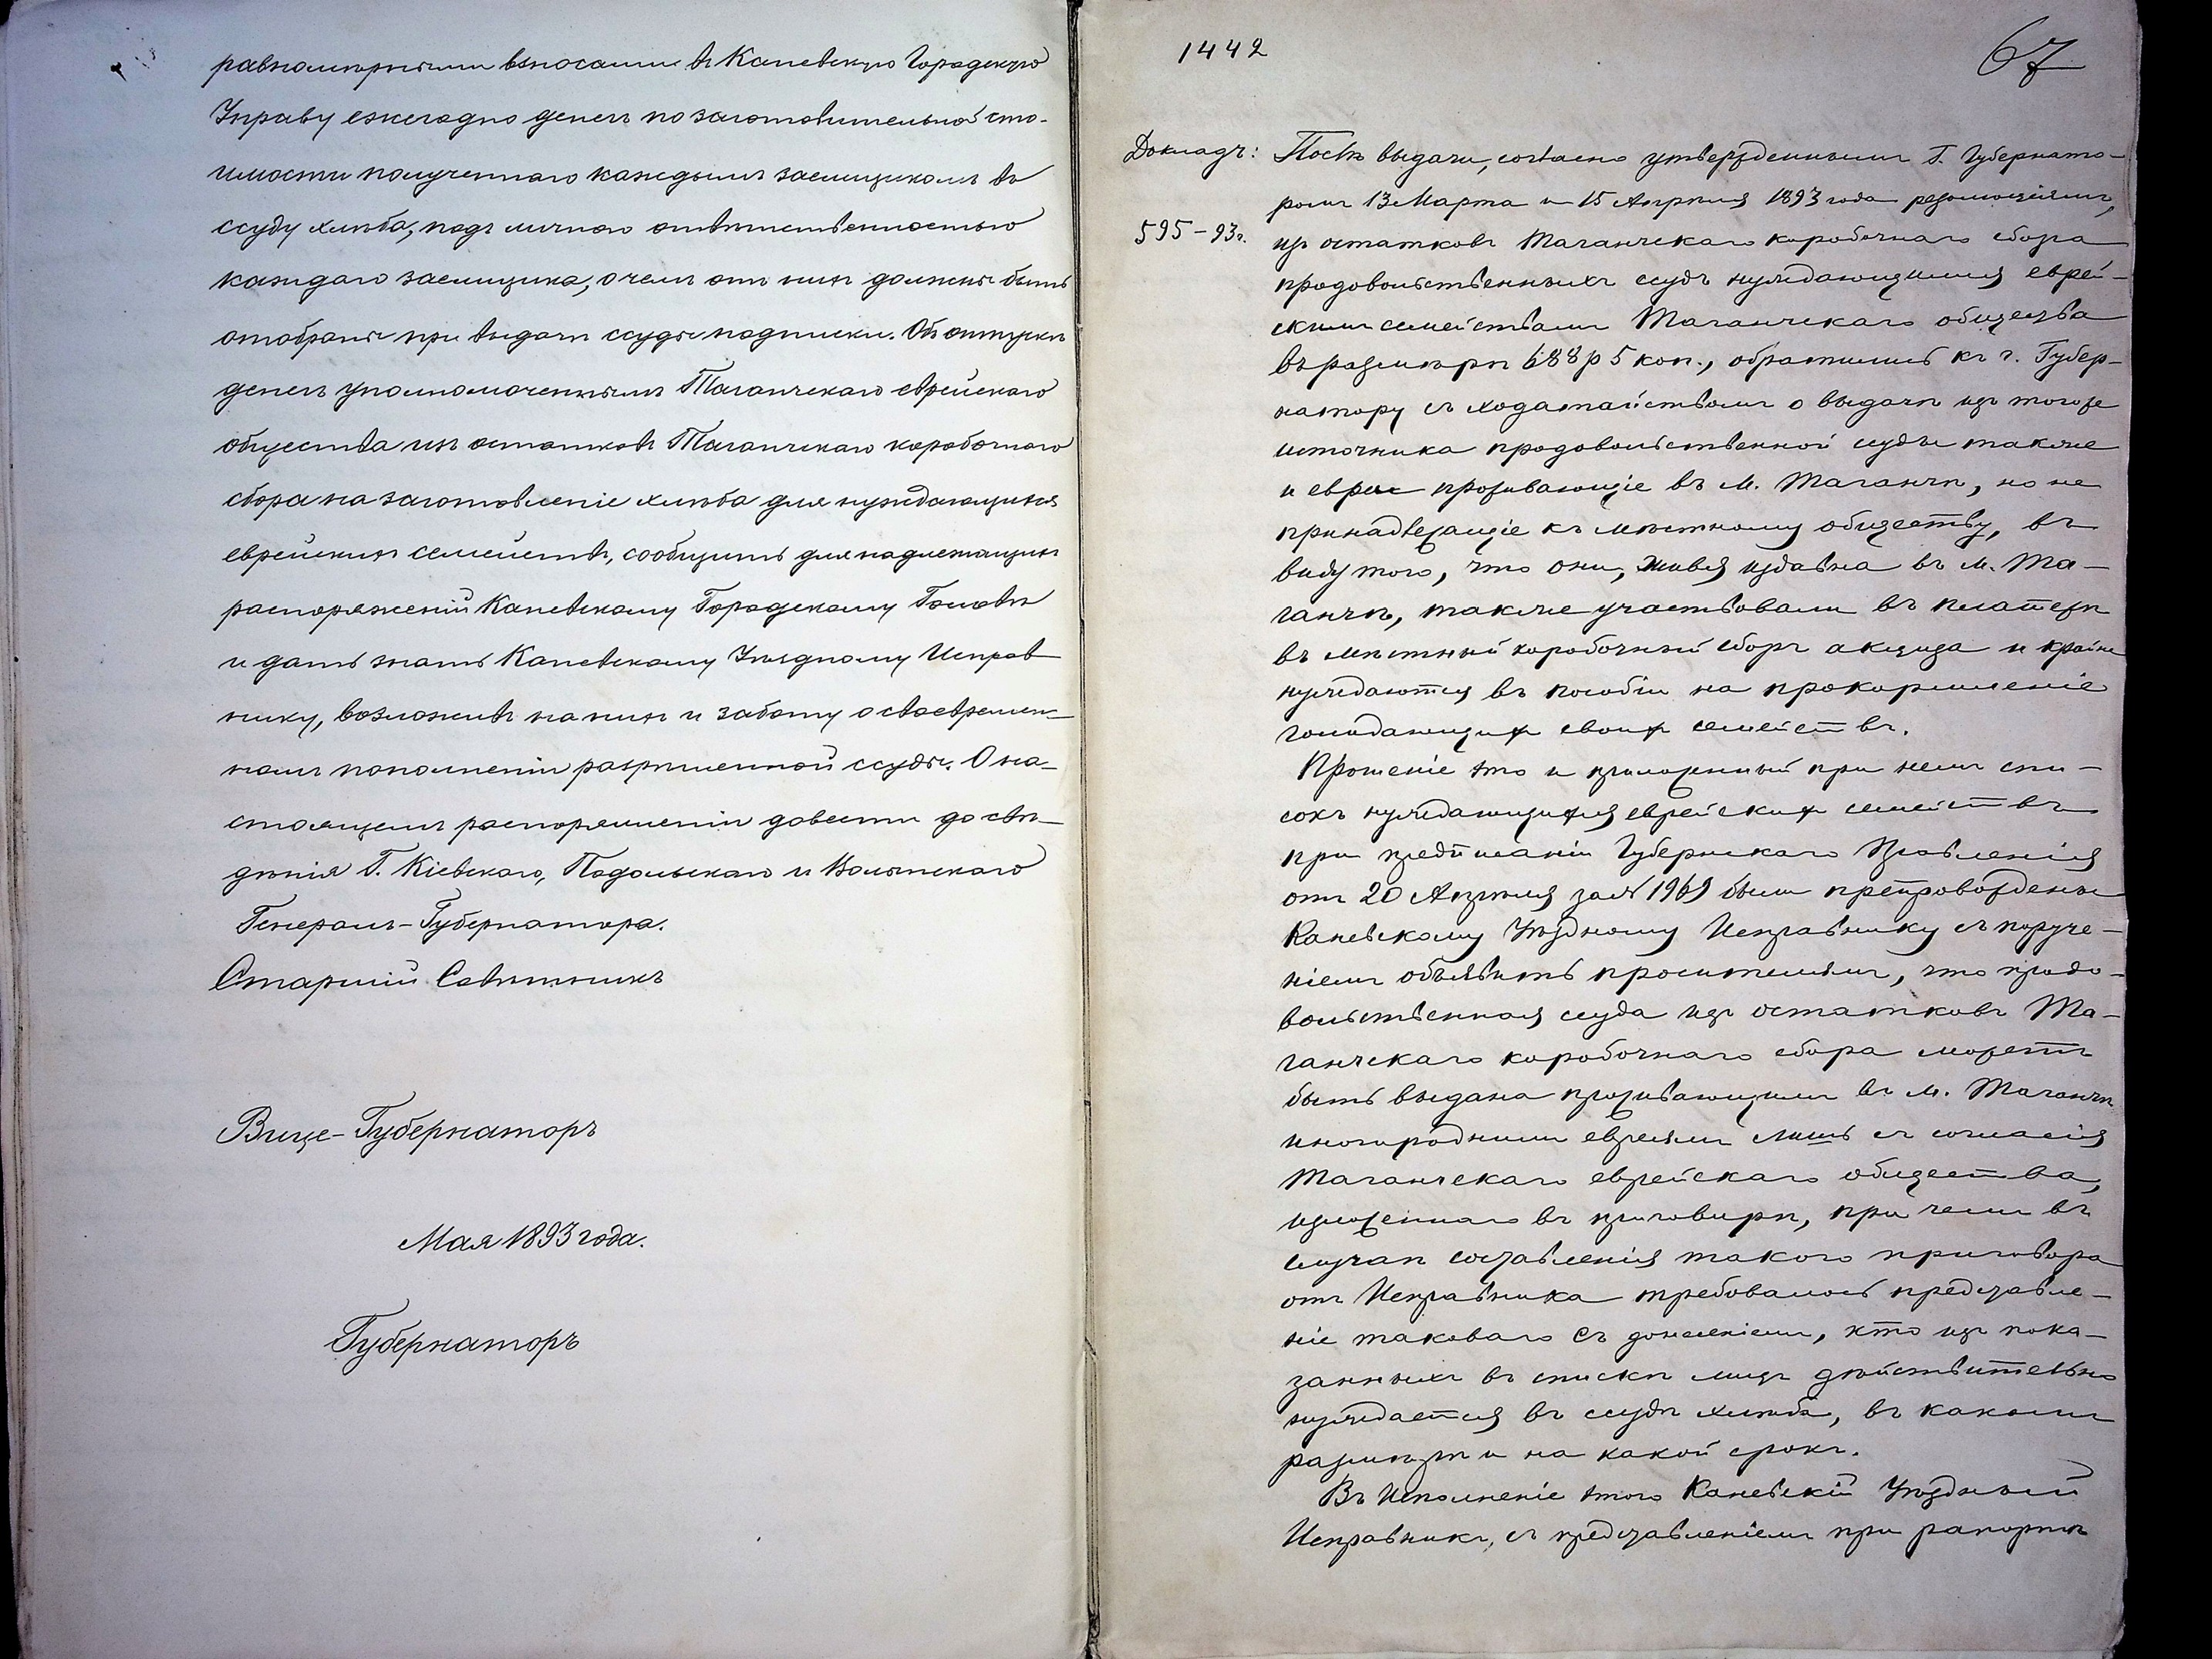 равномѣрными взносами въ Каневскую Городскую
Управу ежегодно денегъ по заготовительной сто-
имости полученнаго каждымъ заемщикомъ въ
ссуду хлѣба, подъ личною отвѣтственностью
каждаго заемщика, о чемъ отъ нихъ должны быть
отобраны при выдачѣ ссуды подписки. Объ отпускѣ
денегъ уполномоченнымъ Таганчскаго еврейскаго
общества изъ остатковъ Таганчскаго коробочнаго
сбора на заготовленіе хлѣба для нуждающихся
еврейскихъ семействъ, сообщить для надлежащихъ
распоряженій Каневскому Городскому Головѣ
и дать знать Каневскому Уѣздному Исправ
нику, возложивъ на нихъ и заботу о своевремен-
номъ пополненіи разрѣшенной ссуды. О на-
стоящемъ распоряженіи довести до свѣ-
дѣнія Г. Кіевскаго, Подольскаго и Волынскаго
Генералъ-Губернатора.
Старшій Совѣтникъ
Вице-Губернаторъ
Мая 1893 года.
Губернаторъ
1442
67
Докладъ:
595-93г.
Послѣ выдачи, согласно утвержденнымъ Г. Губернато-
ромъ 13 Марта и 15 Апрѣля 1893 года резолюціямъ,
изъ остатковъ Таганчскаго коробочнаго сбора
продовольственныхъ ссудъ нуждающимся еврей-
скимъ семействамъ Таганчскаго общества
въ размѣрѣ 688 р 5 коп., обратились къ г. Губер-
натору съ ходатайствомъ о выдачѣ изъ того же
источника продовольственной ссуды также
и евреи проживающіе въ м. Таганчѣ, но не
принадлежащіе къ мѣстному обществу, въ
виду того, что они, живя издавна въ м. Та-
ганчѣ, также участвовали въ платежѣ
въ мѣстный коробочный сборъ акциза и крайне
нуждаются въ пособіи на прокормленіе
голодающихъ своихъ семействъ.
Прошеніе это и приложенный при немъ спи-
сокъ нуждающихся еврейскихъ семействъ
при предписаніи Губернскаго Правленія
отъ 20 Апрѣля за № 1969 были препровождены
Каневскому Уѣздному Исправнику съ поруче-
ніемъ объявить просителямъ, что продо-
вольственная ссуда изъ остатковъ Та-
ганчскаго коробочнаго сбора можетъ
быть выдана проживающимъ въ м. Таганчѣ
иногороднимъ евреямъ лишь съ согласія
Таганчскаго еврейскаго общества,
изложеннаго въ приговорѣ, при чемъ въ
случаѣ составленія такого приговора
отъ Исправника требовалось представле-
ніе таковаго съ донесеніемъ, кто изъ пока-
занныхъ въ спискѣ лицъ дѣйствительно
нуждается въ ссудѣ хлѣба, въ какомъ
размѣрѣ и на какой срокъ.
Въ исполненіе этого Каневскій Уѣздный
Исправникъ, съ представленіемъ при рапортѣ